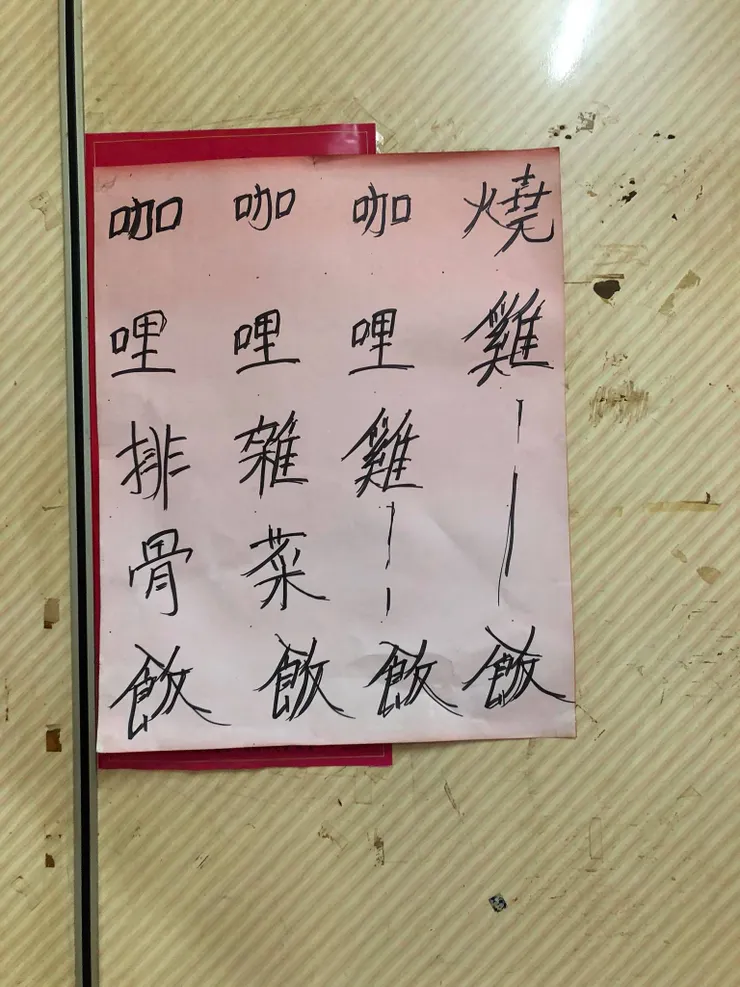 燒雞——飯
咖哩雞——飯
咖哩雜菜飯
咖哩排骨飯